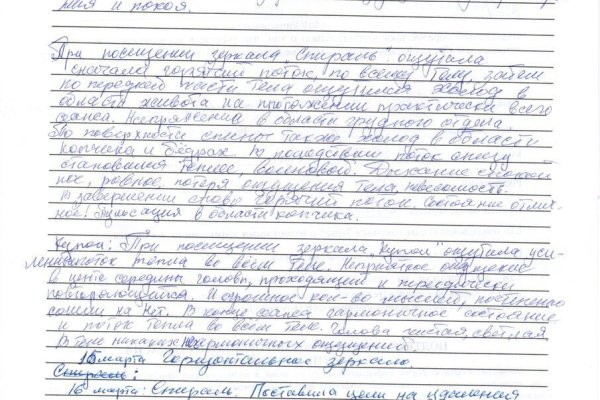 мия и покоя.
При посещении зеркала "Спираль" ощутила
сначала горячий поток, по всему телу, затем
по передней части тела ощущался холод в
области живота на протяжении практически всего
сеанса. Напряжение в области грудного отдела.
По поверхности спины также холод в области
копчика и бёдрах. В последствии поток снизу
становился теплее, волновой. Дыхание спокой
ное, ровное, потеря ощущения тела, невесомость.
В завершении снова горячий поток. Состояние отлич-
ное. Пульсация в области копчика.
Купол: При посещении зеркала "Купол" ощутила уси-
ление поток тепла во всём теле. Неприятное ощущение
в центре середины головы, проходящий и периодически
повторяющийся. И огромное кол-во мыслей, постепенно
сошли на нет. В конце сеанса гармоничное состояние
и поток тепла во всём теле. Голова чистая, светлая.
В теле никаких не гармоничных ощущений.
15 марта Горизонтальное зеркало.
Спираль:
16 марта: Спираль. Поставила цели на удаления